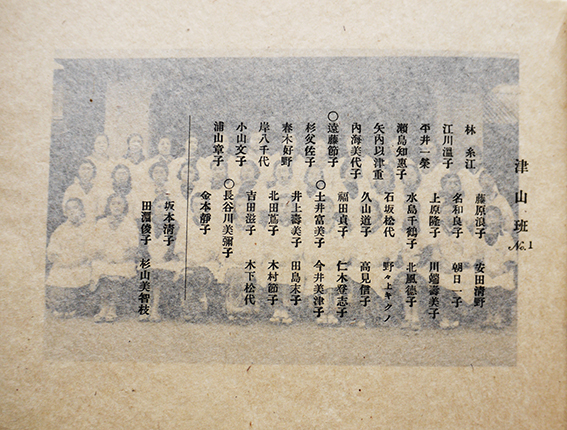 津山班 No.1
林糸江 藤原浪子 安田清野
江川溫子 名和良子 朝日一子
平井一榮 上原隆子 川端壽美子
瀬島知惠子 水島千鶴子 北風德子
矢內以津重 石坂松代 野々上キクノ
內海美代子 久山道子 高見信子
○遠藤節子 福田貞子 仁木登志子
杉峦佐子 ○土井富美子 今井美津子
春木好野 井上壽美子 田島末子
岸八千代 北田蔦子 木村節子
小山文子 吉田滋子 木下松代
浦山章子 ○長谷川美彌子
金本靜子
坂本清子
田淵俊子 杉山美智枝